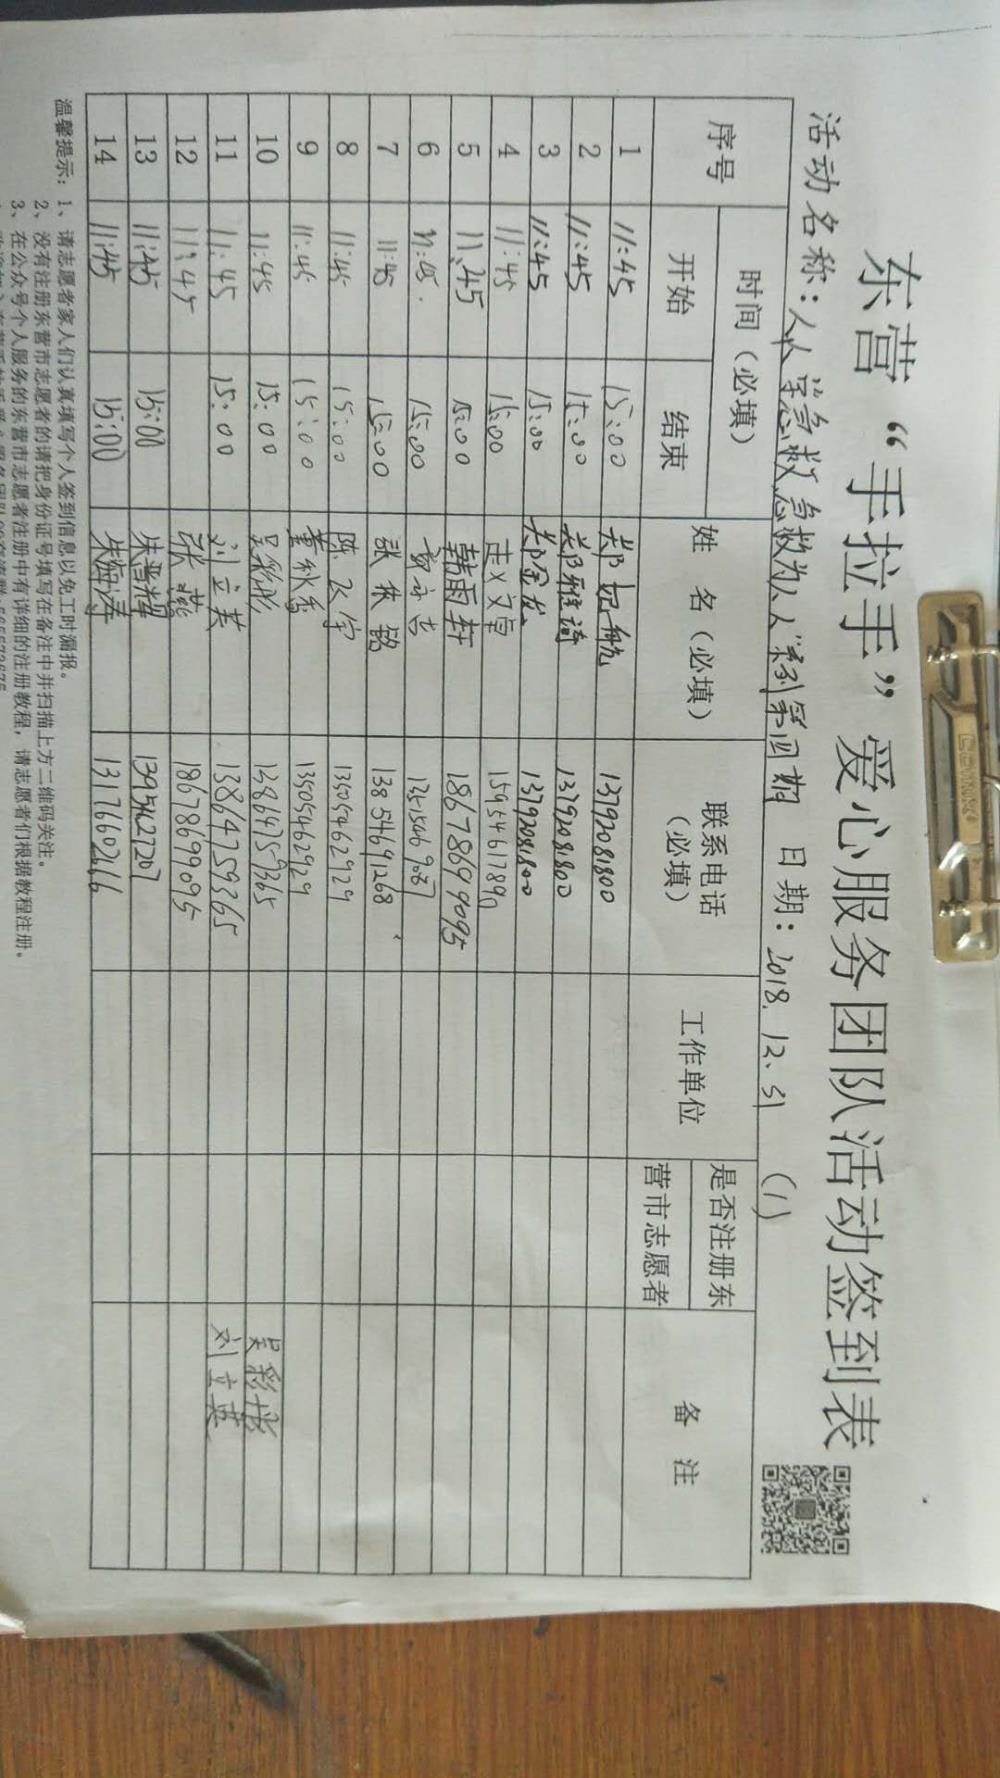 东营“手拉手”爱心服务团队活动签到表
活动名称：人人学急救，急救为人人系列第四期 日期：2018.12.31 (1)
序号 时间（必填） 姓 名（必填） 联系电话（必填） 工作单位 是否注册东营市志愿者 备 注
开始 结束
1 11:45 15:00 13792081800
2 11:45 15:00 郑雅琦 13792081800
3 11:45 15:00 郑金发 13792081800
4 11:45 15:00 15954613890
5 11:45 15:00 韩雨轩 18678699095
6 11:45. 15:00
7 11:45 15:00 13854691268
8 11:45 15:00 13505462929
9 11:45 15:00 董秋香 13505462929
10 11:45 15:00 吴彩彤 13864759365 吴彩彤
11 11:45 15:00 刘立英 13864759365 刘立英
12 11:45 张 18678699095
13 11:45 15:00 朱晋辉 13954272707
14 11:45 15:00 13176602616
温馨提示：1、请志愿者家人们认真填写个人签到信息以免工时漏报。
2、没有注册东营市志愿者的请把身份证号填写在备注中并扫描上方二维码关注。
3、在公众号个人服务的东营市志愿者注册中有详细的注册教程，请志愿者们根据教程注册。